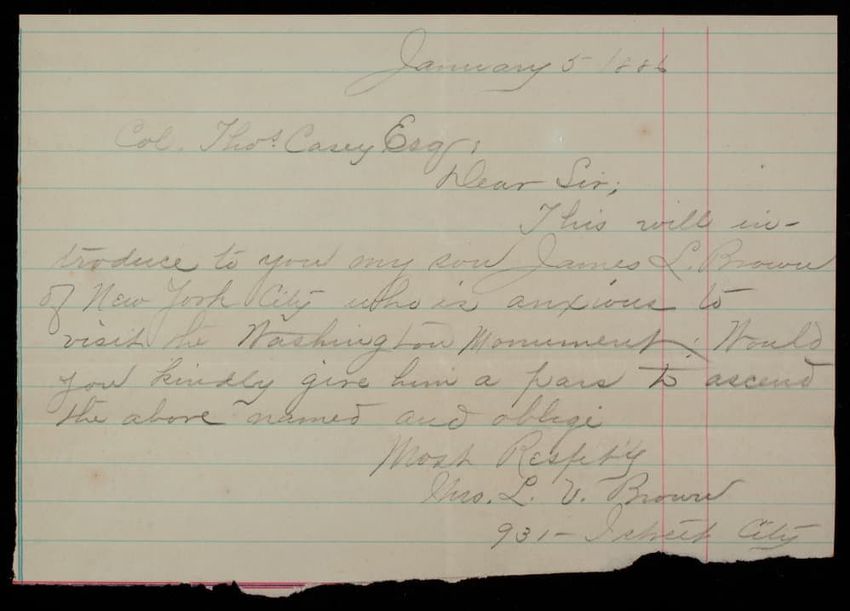 January 5 1886
Col. Thos. Casey Esq;
Dear Sir;
This will in-
troduce to you my son James L. Brown
of New York City who is anxious to
visit the Washington Monument; Would
you kindly give him a pass to ascend
the above named and oblige
Most Respet'y
Mrs. L. V. Brown
931- I street City